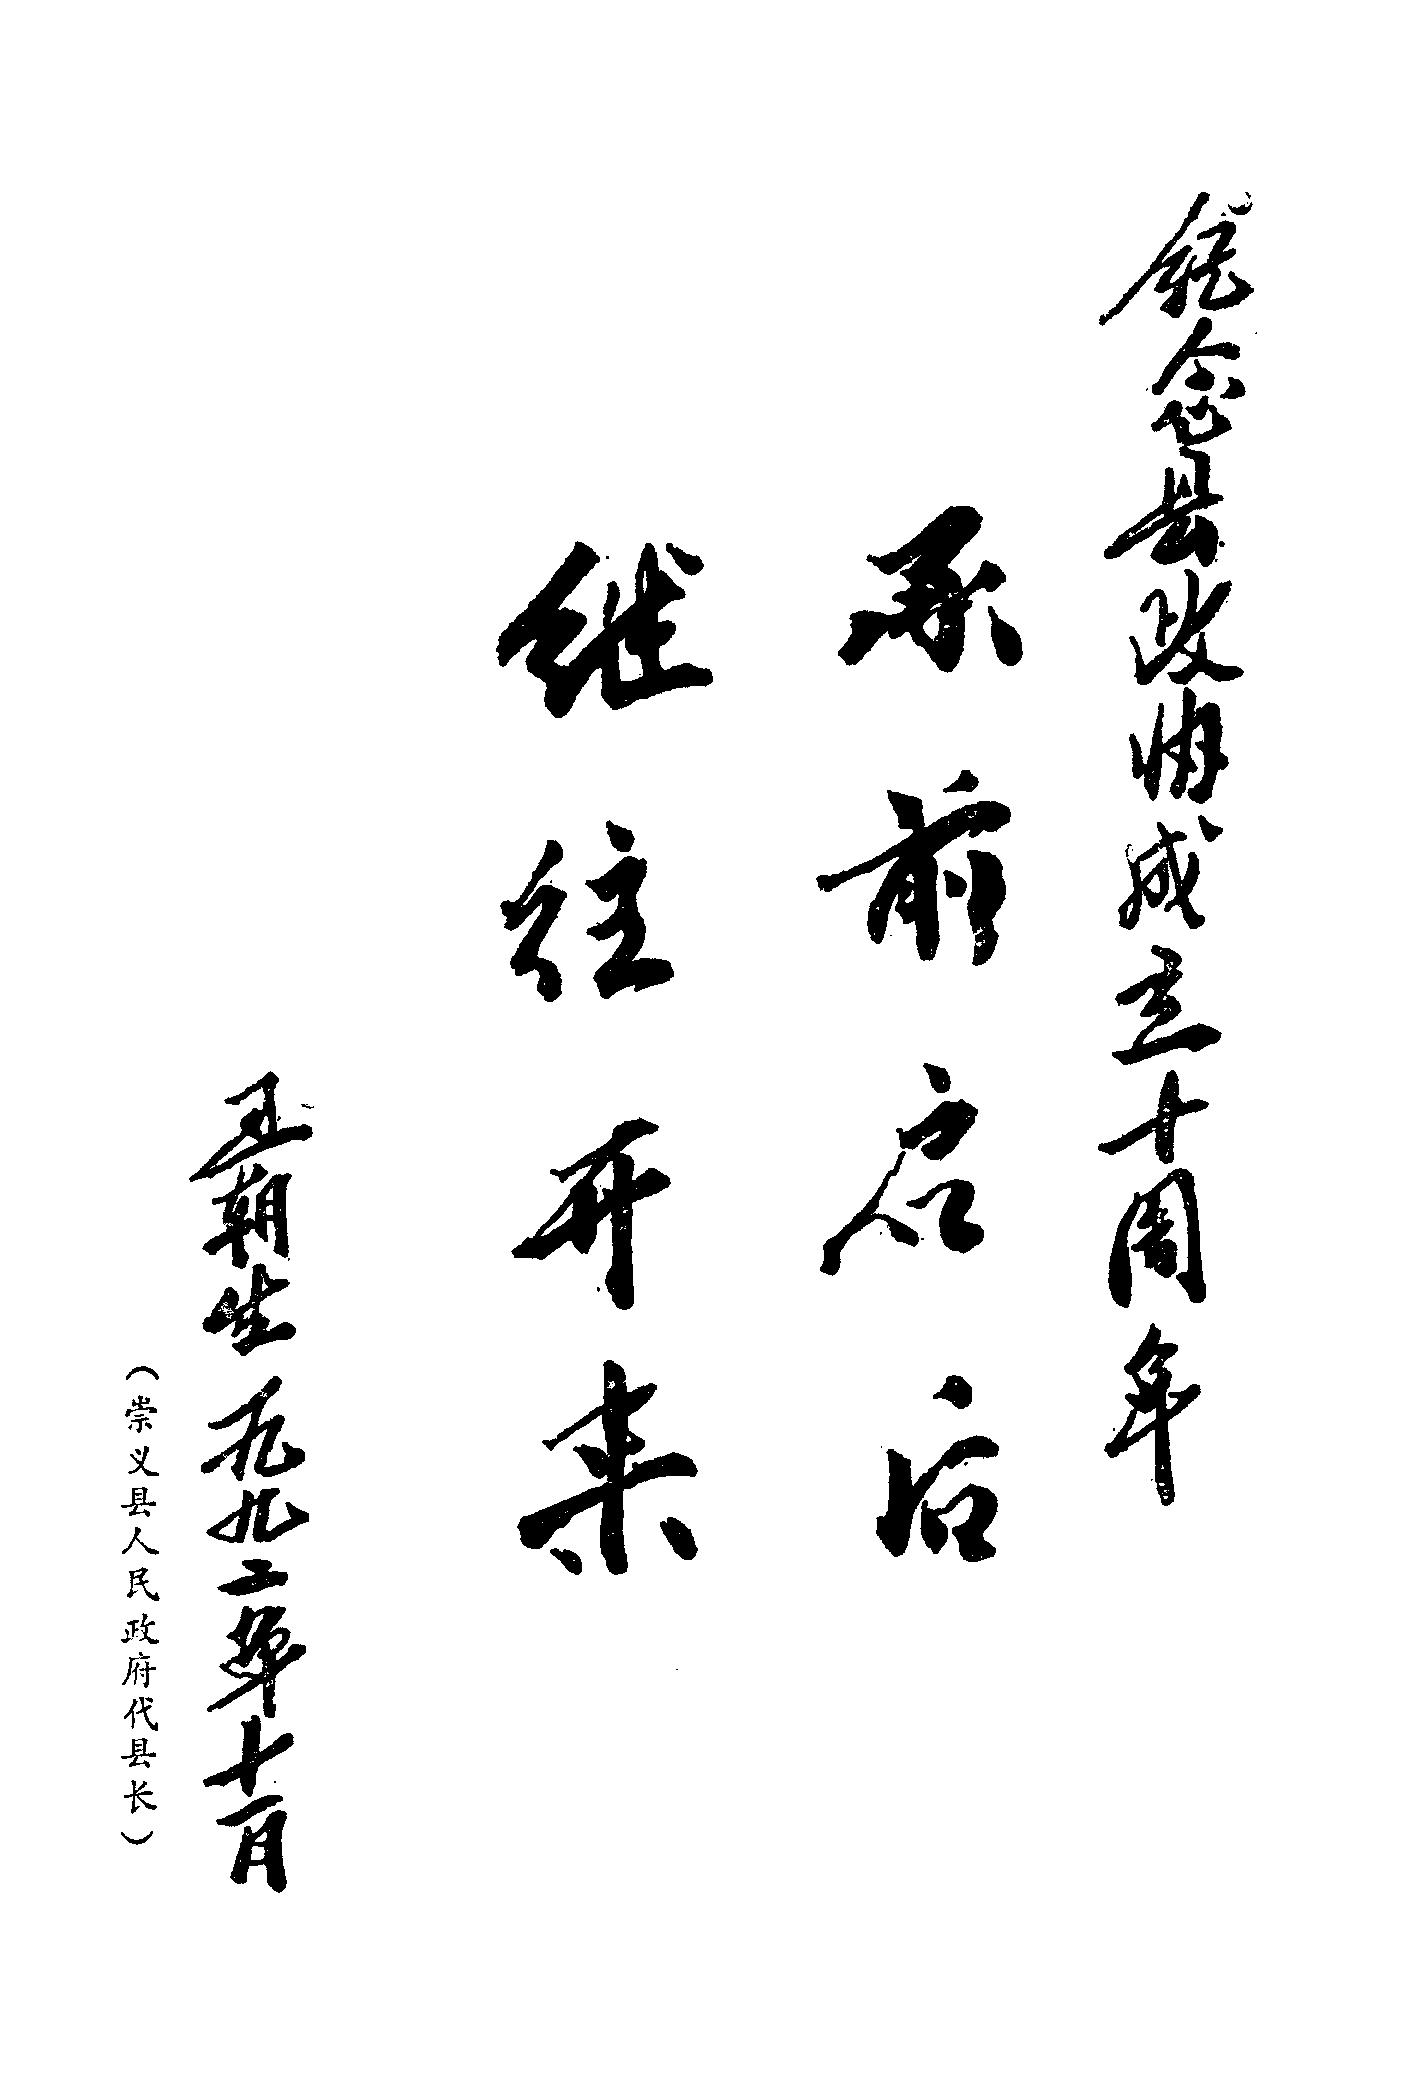 纪念县政协成立十周年
承前启后
继往开来
王朝生 一九九二年十一月
（崇义县人民政府代县长）